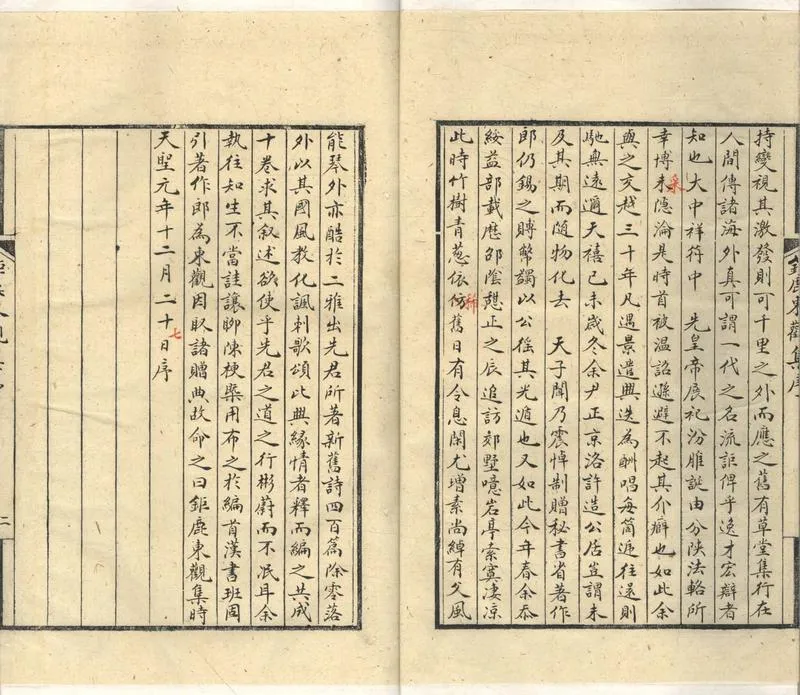 持變視其激發則可千里之外而應之舊有草堂集行在
人間傳諸海外真可謂一代之名流詎俾乎逸才宏辯者
知也大中祥符中　先皇帝展祀汾脽誕由分陝法輅所
幸博未隱淪是時首被温詔遜避不起其介癖也如此余
采
與之交越三十年凡遇景遣興迭為酬唱每筒遞往還則
馳無遠邇天禧己未歲冬余尹正京洛許造公居豈謂未
及其期而隨物化去　天子聞乃震悼制贈秘書省著作
郎仍錫之賻幣蠲以公徭其光遁也又如此今年春余忝
綏益部載歷邵陰憩正之辰追訪郊墅噫岩亭索寞凄凉
此時竹樹青蔥依仿舊日有令息閑尤增素尚綽有父風
稀
鉅鹿東觀集序
能琴外亦酷於二雅出先君所著新舊詩四百篇除零落
外以其國風教化諷刺歌頌比興緣情者釋而編之共成
十卷求其叙述欲使乎先君之道之行彬蔚而不泯耳余
執往知生不當詿讓聊陳梗槩用布之於編首漢書班固
引著作郎為東觀因取諸贈典故命之曰鉅鹿東觀集時
天聖元年十二月二十日序
七
二